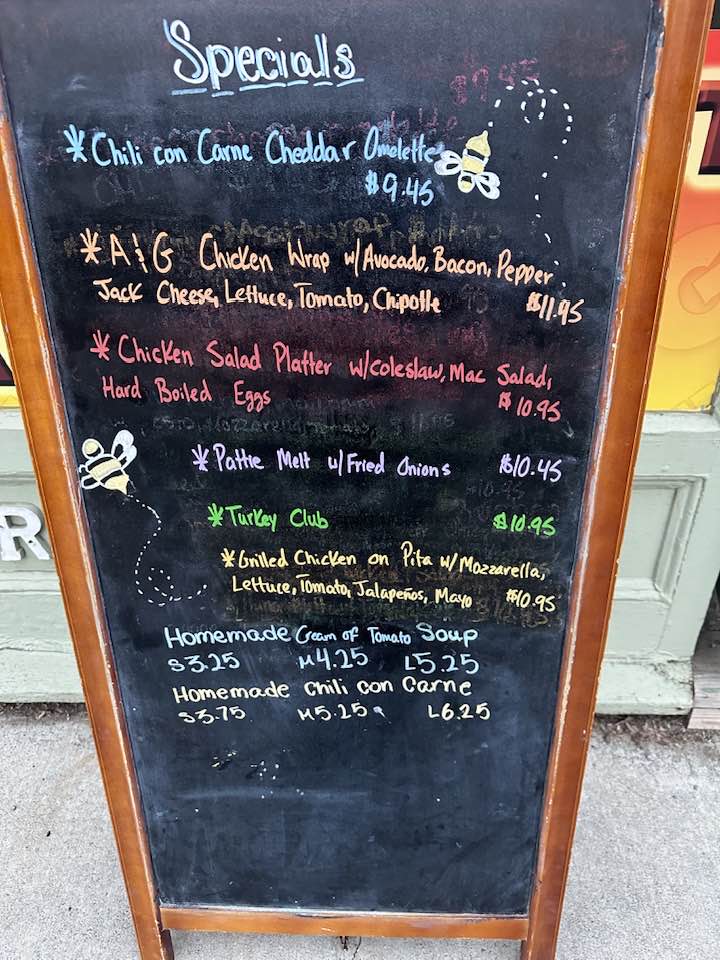 Specials
*Chili con Carne Cheddar Omelette
$9.45
*A&G Chicken Wrap w/Avocado, Bacon, Pepper
Jack Cheese, Lettuce, Tomato, Chipotle $11.95
*Chicken Salad Platter w/coleslaw, Mac Salad,
Hard Boiled Eggs $10.95
*Pattie Melt w/Fried Onions $10.45
*Turkey Club $10.95
*Grilled Chicken on Pita w/Mozzarella,
Lettuce, Tomato, Jalapeños, Mayo $10.95
Homemade Cream of Tomato Soup
S3.25 M4.25 L5.25
Homemade Chili con Carne
S3.75 M5.25 L6.25
R